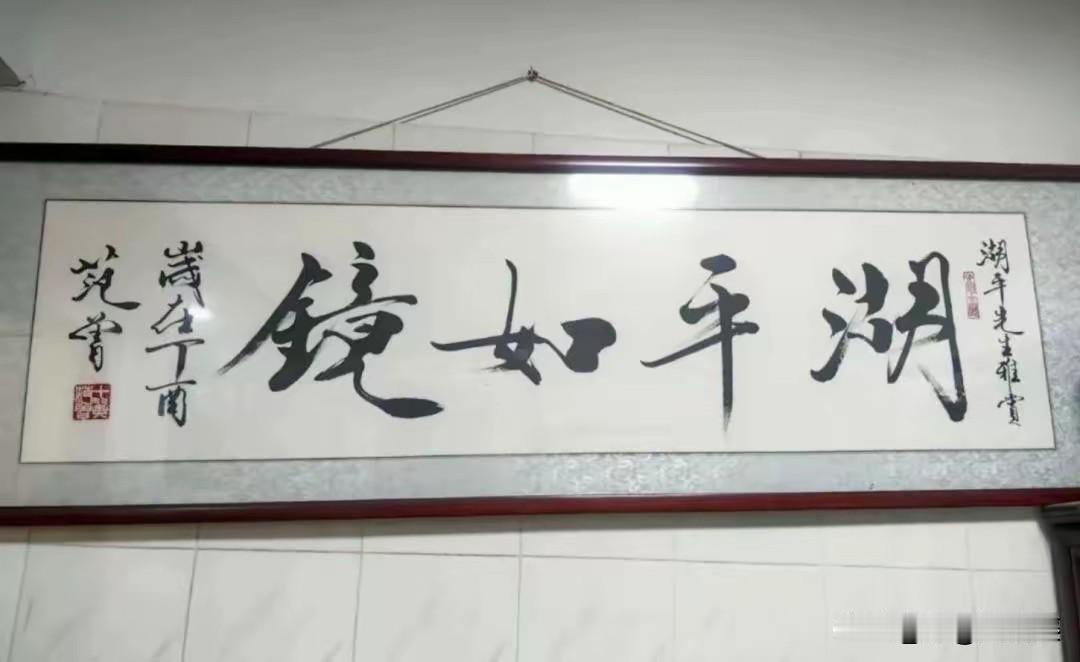 湖平先生雅赏
湖平如镜
歲在丁酉
范曾